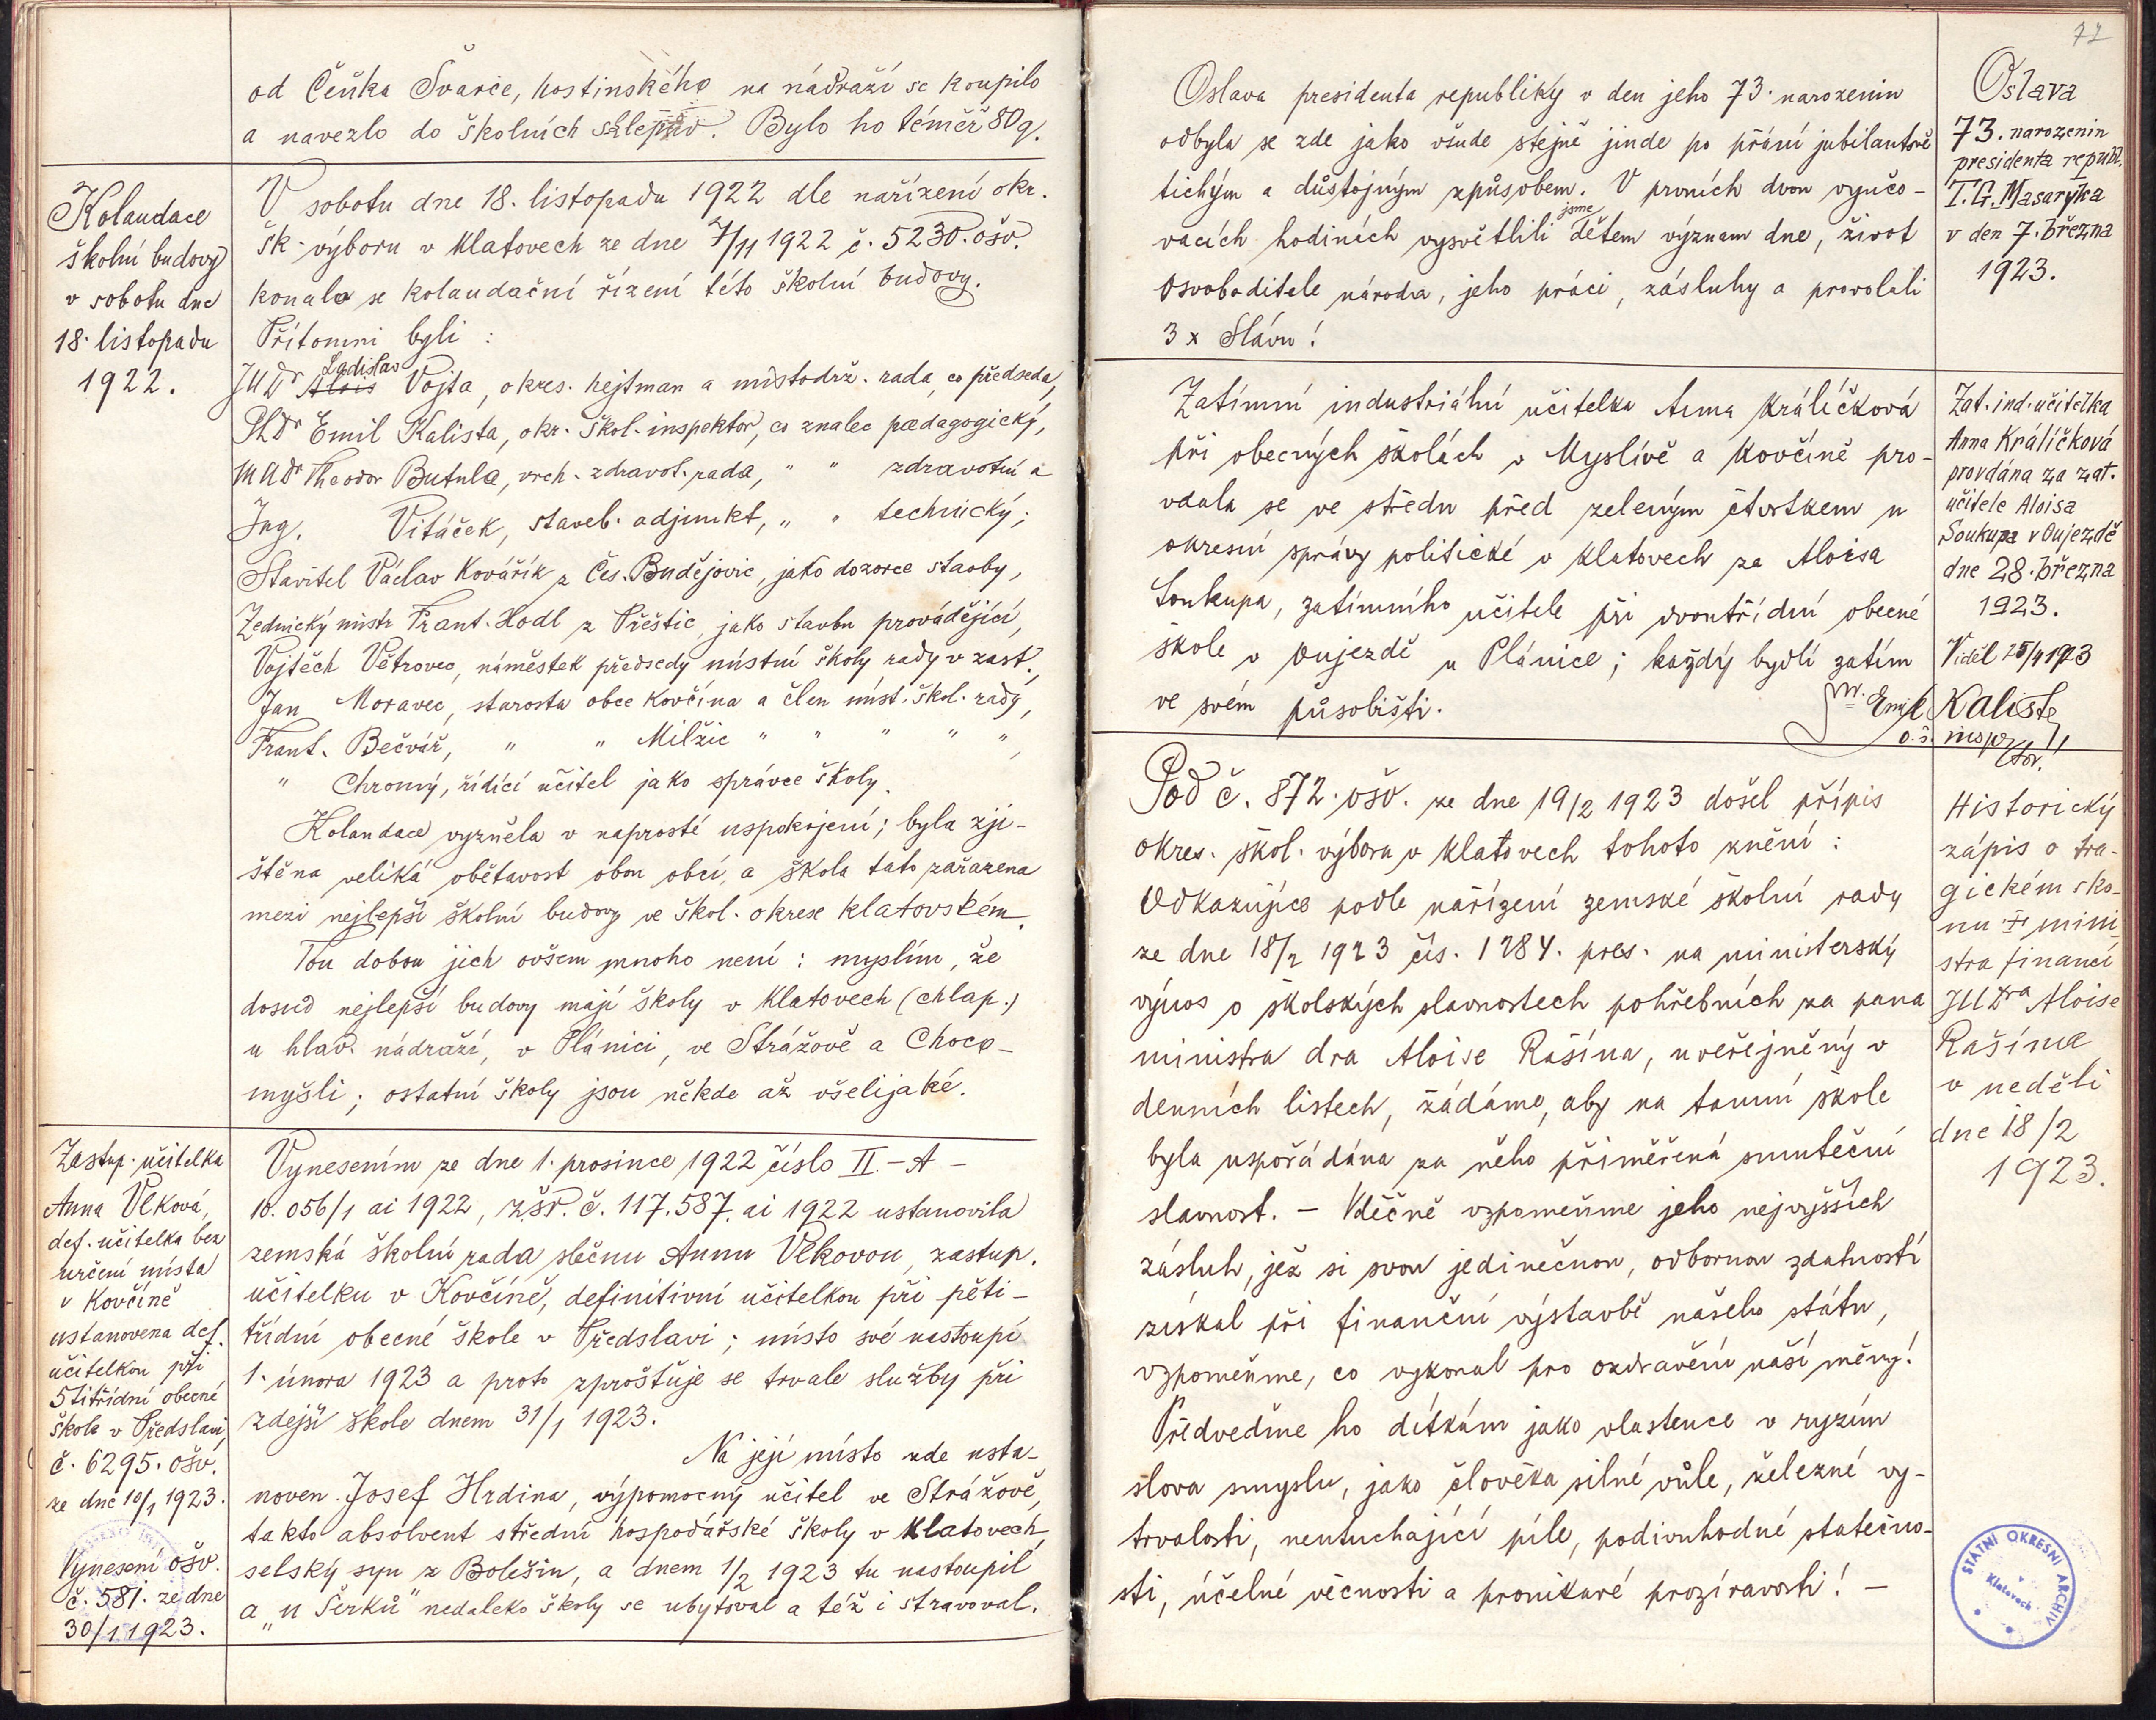 od Čeňka Švarce, hostinského na nádraží se koupilo
a navezlo do školních sklepův. Bylo ho téměř 80 q.
Kolaudace
školní budovy
v sobotu dne
18. listopadu
1922.
V sobotu dne 18. listopadu 1922 dle nařízení okr.
šk. výboru v Klatovech ze dne 7/11 1922 č. 5230. ošv.
konala se kolaudační řízení této školní budovy.
Přítomni byli :
Ladislav
JUDr Alois Vojta, okres. hejtman a místodrž. rada, co předseda,
PhDr Emil Kalista, okr. škol. inspektor, co znalec paedagogický,
MUDr Theodor Butula, vrch. zdravot. rada, " " zdravotní a
Ing. Vitáček, staveb. adjunkt, " " technický;
Stavitel Václav Kovářík z Čes. Budějovic, jako dozorce stavby,
Zednický mistr Frant. Hodl z Přeštic, jako stavbu provádějící,
Vojtěch Větrovec, náměstek předsedy místní školy rady v zast.,
Jan Moravec, starosta obce Kovčína a člen míst. škol. rady,
Frant. Bečvář, " " Milžic " " " " ",
" Chromý, řídící učitel jako správce školy.
Kolaudace vyzněla v naprosté uspokojení; byla zji-
štěna veliká obětavost obou obcí, a škola tato zařazena
mezi nejlepší školní budovy ve škol. okrese klatovském.
Tou dobou jich ovšem mnoho není : myslím, že
dosud nejlepší budovy mají školy v Klatovech (chlap.)
u hlav. nádraží, v Plánici, ve Strážově a Choco-
myšli; ostatní školy jsou někde až všelijaké.
Zastup. učitelka
Anna Vlková,
def. učitelka bez
určení místa
v Kovčíně
ustanovena def.
učitelkou při
5titřídní obecné
škole v Předslavi,
č. 6295. ošv.
ze dne 10/1 1923.
Vynesení ošv.
č. 581. ze dne
30/1 1923.
Vynesením ze dne 1. prosince 1922 číslo II. – A –
10.056/1 ai 1922, zšr. č. 117.587. ai 1922 ustanovila
zemská školní rada slečnu Annu Vlkovou, zastup.
učitelku v Kovčíně, definitivní učitelkou při pěti-
třídní obecné škole v Předslavi; místo své nastoupí
1. února 1923 a proto zprošťuje se trvale služby při
zdejší škole dnem 31/1 1923.
Na její místo zde usta-
noven Josef Hrdina, výpomocný učitel ve Strážově,
takto absolvent střední hospodářské školy v Klatovech,
selský syn z Bolešin, a dnem 1/2 1923 tu nastoupil
a „u Šerků" nedaleko školy se ubytoval a též i stravoval.
72
Oslava presidenta republiky v den jeho 73. narozenin
odbyla se zde jako všude stejně jinde po přání jubilantově
tichým a důstojným způsobem. V prvních dvou vyučo-
jsme
vacích hodinách vysvětlili dětem význam dne, život
Osvoboditele národa, jeho práci, zásluhy a provolali
3 x Slávu!
Oslava
73. narozenin
presidenta republ.
T. G. Masaryka
v den 7. března
1923.
Zatímní industriální učitelka Anna Králíčková
při obecných školách v Myslívě a Kovčíně pro-
vdala se ve středu před zeleným čtvrtkem u
okresní správy politické v Klatovech za Aloisa
Soukupa, zatímního učitele při dvoutřídní obecné
škole v Oujezdě u Plánice; každý bydlí zatím
ve svém působišti.
Zat. ind. učitelka
Anna Králíčková
provdána za zat.
učitele Aloisa
Soukupa v Oujezdě
dne 28. března
1923.
Viděl 25/4 1923
Dr. Emil Kalista
o. š. inspektor.
Pod č. 872. ošv. ze dne 19/2 1923 došel přípis
okres. škol. výboru v Klatovech tohoto znění :
Odkazujíce podle nařízení zemské školní rady
ze dne 18/2 1923 čís. 1284. pres. na ministerský
výnos o školských slavnostech pohřebních za pana
ministra dra Aloise Rašína, uveřejněný v
denních listech, žádáme, aby na tamní škole
byla uspořádána za něho přiměřená smuteční
slavnost. – Vděčně vzpomeňme jeho nejvyšších
zásluh, jež si svou jedinečnou, odbornou zdatností
získal při finanční výstavbě našeho státu,
vzpomeňme, co vykonal pro ozdravění naší měny!
Předveďme ho dítkám jako vlastence v ryzím
slova smyslu, jako člověka silné vůle, železné vy-
trvalosti, neutuchající píle, podivuhodné statečno-
sti, účelné věcnosti a pronikavé prozíravosti! –
Historický
zápis o tra-
gickém sko-
nu † mini-
stra financí
JUDra Aloise
Rašína
v neděli
dne 18/2
1923.
STÁTNÍ OKRESNÍ ARCHIV
v
Klatovech